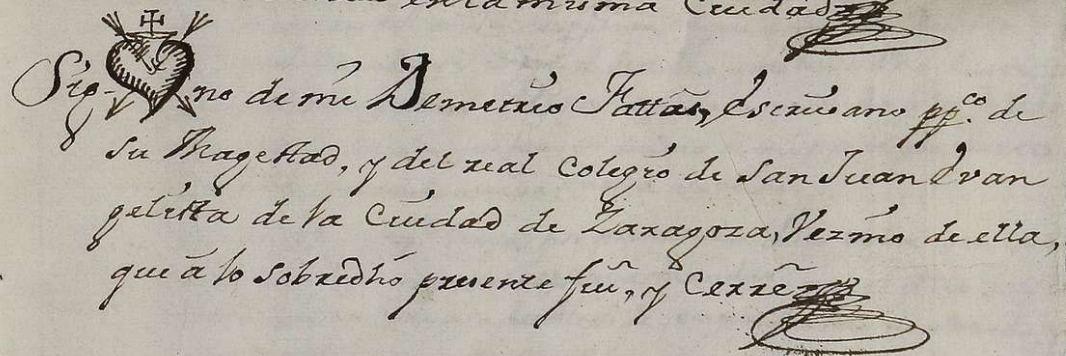 en la misma Ciudad
Sig-no de mi Demetrio Fattas, Escriuano pp.co de
su Magestad, y del real Colegio de San Juan Evan
gelista de la Ciudad de Zaragoza, Vezino de ella,
que â lo sobredho presente fui, y Cerrê